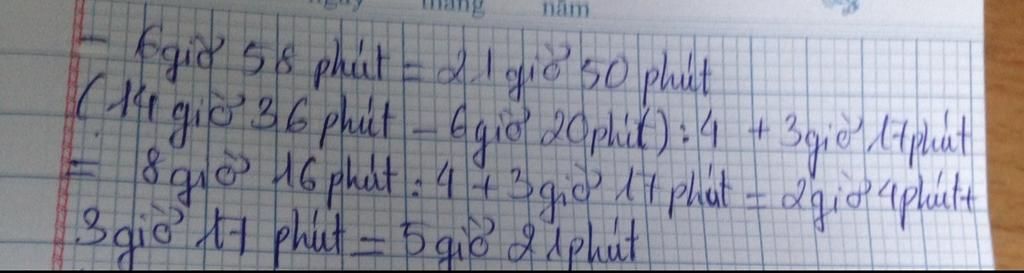 ngày tháng năm
- 6 giờ 58 phút = 21 giờ 50 phút
(14 giờ 36 phút - 6 giờ 20 phút) : 4 + 3 giờ 17 phút
= 8 giờ 16 phút : 4 + 3 giờ 17 phút = 2 giờ 4 phút +
3 giờ 17 phút = 5 giờ 21 phút